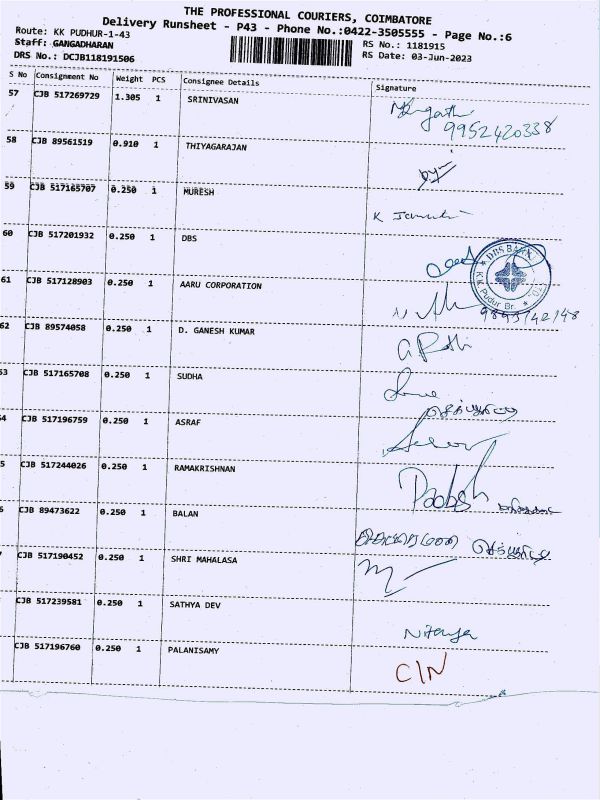 THE PROFESSIONAL COURIERS, COIMBATORE
Delivery Runsheet - P43 - Phone No.:0422-3505555 - Page No.:6
Route: KK PUDHUR-1-43
Staff: GANGADHARAN
RS No.: 1181915
DRS No.: DCJB118191506
RS Date: 03-Jun-2023
S No Consignment No Weight PCS Consignee Details Signature
57 CJB 517269729 1.305 1 SRINIVASAN
9952420338
58 CJB 89561519 0.910 1 THIYAGARAJAN
59 CJB 517165707 0.250 1 MURESH
K
60 CJB 517201932 0.250 1 DBS
DBS BANK
K.K. Pudur Br.
61 CJB 517128903 0.250 1 AARU CORPORATION
62 CJB 89574058 0.250 1 D. GANESH KUMAR
53 CJB 517165708 0.250 1 SUDHA
4 CJB 517196759 0.250 1 ASRAF
5 CJB 517244026 0.250 1 RAMAKRISHNAN
6 CJB 89473622 0.250 1 BALAN
CJB 517190452 0.250 1 SHRI MAHALASA
CJB 517239581 0.250 1 SATHYA DEV
CJB 517196760 0.250 1 PALANISAMY
C/N